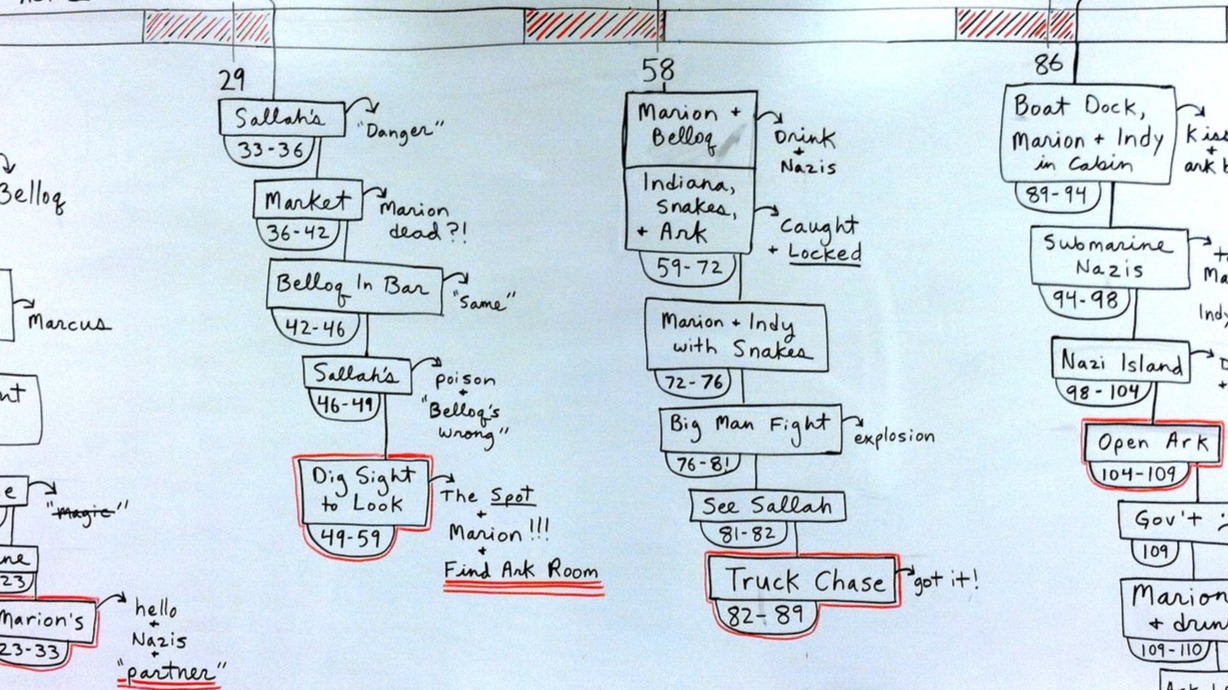 Belloq
Marcus
"Magic"
23
Marion's
23-33
hello
+
Nazis
+
"partner"
29
Sallah's
33-36
"Danger"
Market
36-42
Marion
dead?!
Belloq In Bar
42-46
"Same"
Sallah's
46-49
poison
+
"Belloq's
wrong"
Dig Sight
to Look
49-59
The Spot
+
Marion!!!
+
Find Ark Room
58
Marion +
Belloq
Drink
+
Nazis
Indiana,
Snakes,
+ Ark
59-72
Caught
+ Locked
Marion + Indy
with Snakes
72-76
Big Man Fight
76-81
explosion
See Sallah
81-82
Truck Chase
82-89
got it!
86
Boat Dock,
Marion + Indy
in Cabin
89-94
+
ark
Submarine
Nazis
94-98
Indy
Nazi Island
98-104
+
Open Ark
104-109
Gov't
109
Marion
+
109-110